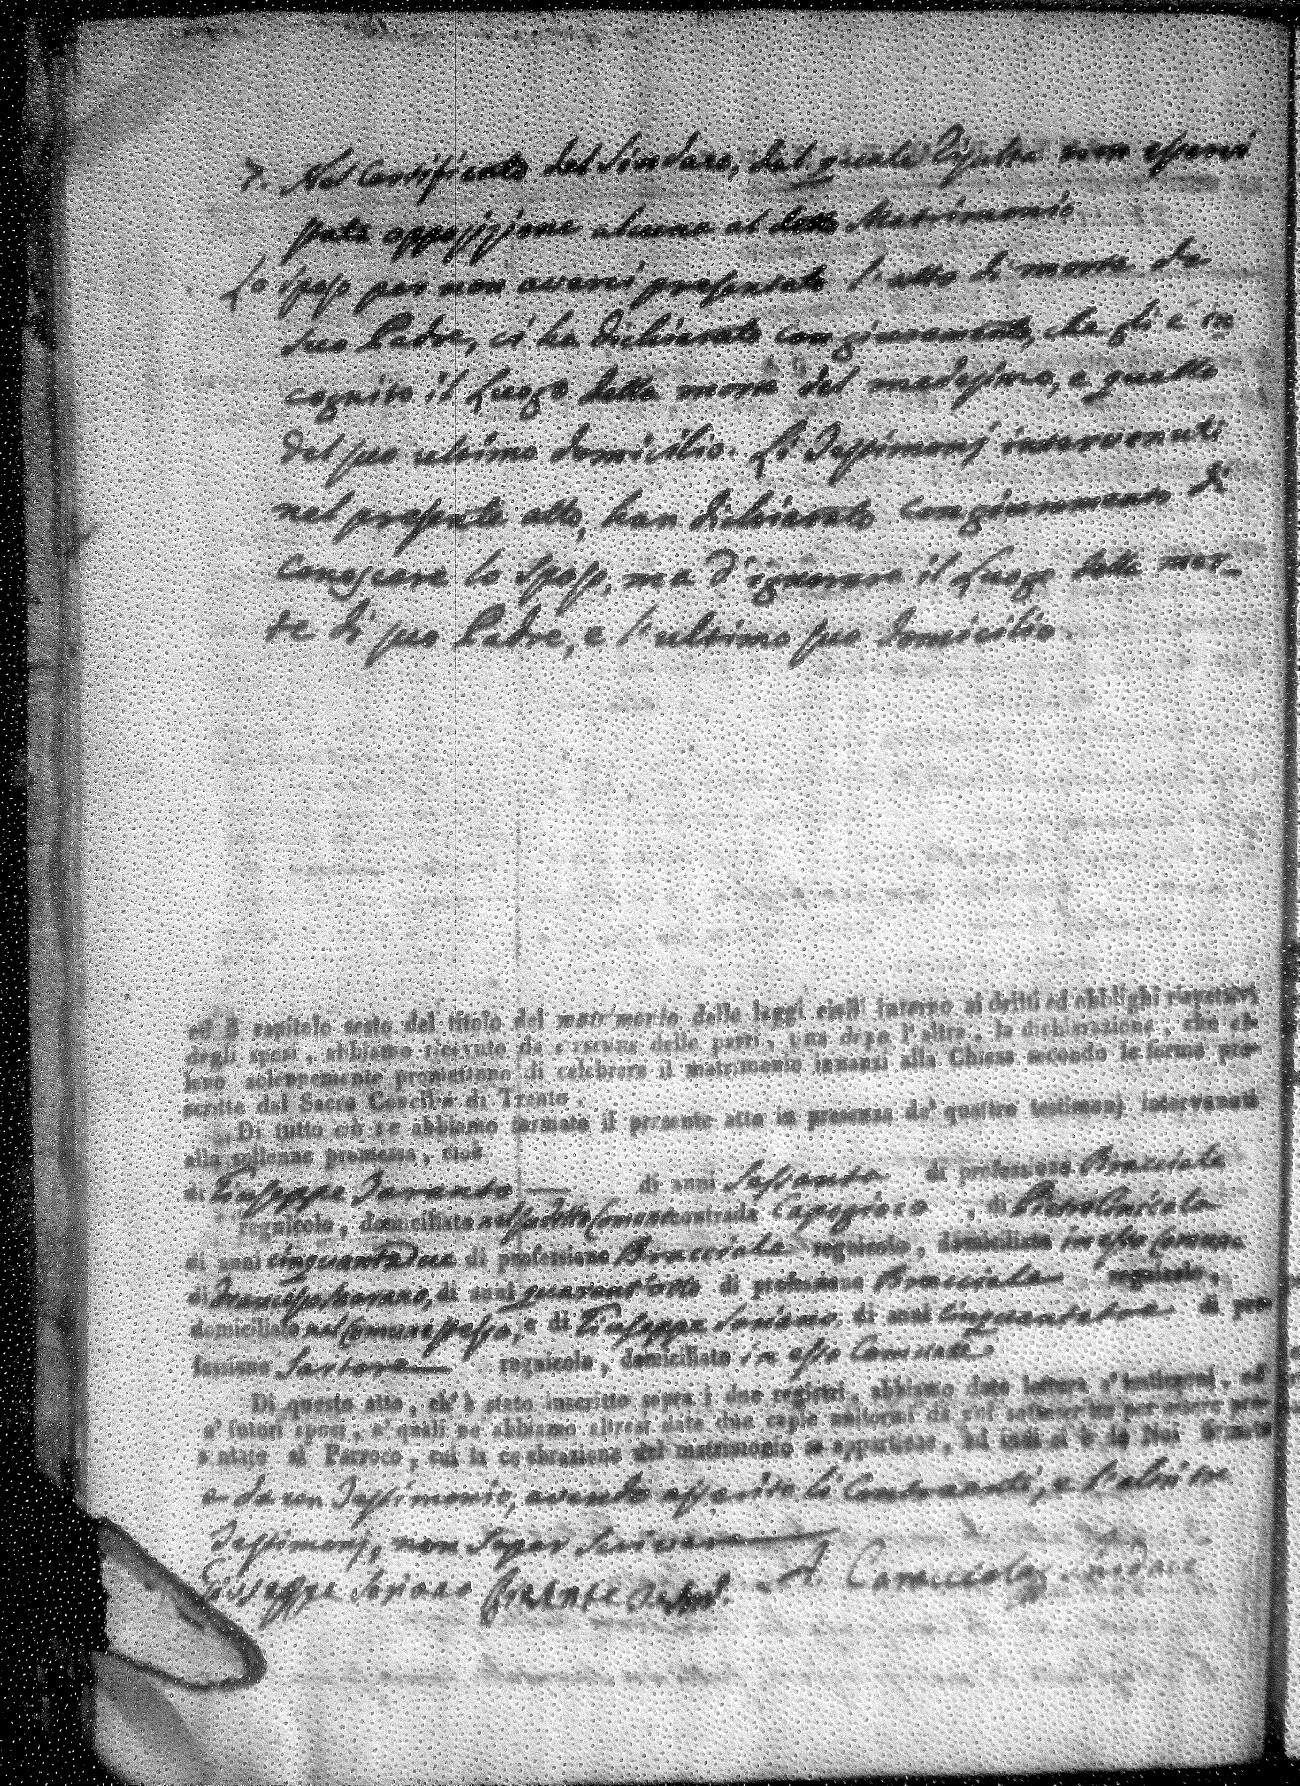 7. Nel Certificato del Sindaco, dal quale risulta non essersi
fatta opposizione alcuna al detto Matrimonio
Lo sposo per non aversi presentato l'atto di morte de
suo Padre, ci ha dichiarato con giuramento, che gli è in
cognito il luogo della morte del medesimo, e quello
del suo ultimo domicilio. Li Testimonj intervenuti
nel presente atto, han dichiarato con giuramento di
conoscere lo sposo, ma d'ignorare il luogo della mor-
te di suo Padre, e l'ultimo suo domicilio.
ed il capitolo sesto del titolo del matrimonio delle leggi civili intorno ai dritti ed obblighi rispettivi
degli sposi, abbiamo ricevuto da ciascuna delle parti, una dopo l'altra, la dichiarazione, che el-
leno solennemente promettono di celebrare il matrimonio innanzi alla Chiesa secondo le forme pre-
scritte dal Sacro Concilio di Trento.
Di tutto ciò ne abbiamo formato il presente atto in presenza de' quattro testimonj intervenuti
alla sollenne promessa, cioè
di Giuseppe Taranto di anni Sessanta di professione Bracciale
regnicolo, domiciliato nel suddetto Comune contrada Capogroco, di Pietro
di anni cinquantadue di professione Bracciale regnicolo, domiciliato in esso Comune
di Francesco di anni quarant'otto di professione Bracciale regnicolo,
domiciliato nel Comune stesso, e di Giuseppe Soriano di anni cinquantatre di pro-
fessione Sartore regnicolo, domiciliato in esso Comune
Di questo atto, ch'è stato inscritto sopra i due registri, abbiamo dato lettura a' testimonj, ed
a' futuri sposi, a' quali ne abbiamo altresì date due copie uniformi da noi sottoscritte per essere pre-
sentate al Parroco, cui la celebrazione del matrimonio si appartiene, ed indi si è da Noi firmato
e da un Testimonio, avendo asserito li Contraenti, e l'altri tre
Testimonj, non saper scrivere
Giuseppe Soriano A. Caracciolo Sindaco